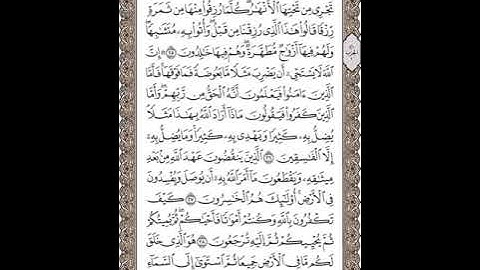 تَجْرِى مِن تَحْتِهَا ٱلْأَنْهَٰرُ كُلَّمَا رُزِقُوا۟ مِنْهَا مِن ثَمَرَةٍ
رِّزْقًا قَالُوا۟ هَٰذَا ٱلَّذِى رُزِقْنَا مِن قَبْلُ وَأُتُوا۟ بِهِۦ مُتَشَٰبِهًا
وَلَهُمْ فِيهَآ أَزْوَٰجٌ مُّطَهَّرَةٌ وَهُمْ فِيهَا خَٰلِدُونَ ٢٥ إِنَّ
ٱللَّهَ لَا يَسْتَحْىِۦٓ أَن يَضْرِبَ مَثَلًا مَّا بَعُوضَةً فَمَا فَوْقَهَا فَأَمَّا
ٱلَّذِينَ ءَامَنُوا۟ فَيَعْلَمُونَ أَنَّهُ ٱلْحَقُّ مِن رَّبِّهِمْ وَأَمَّا
ٱلَّذِينَ كَفَرُوا۟ فَيَقُولُونَ مَاذَآ أَرَادَ ٱللَّهُ بِهَٰذَا مَثَلًا
يُضِلُّ بِهِۦ كَثِيرًا وَيَهْدِى بِهِۦ كَثِيرًا وَمَا يُضِلُّ بِهِۦٓ
إِلَّا ٱلْفَٰسِقِينَ ٢٦ ٱلَّذِينَ يَنقُضُونَ عَهْدَ ٱللَّهِ مِنۢ بَعْدِ
مِيثَٰقِهِۦ وَيَقْطَعُونَ مَآ أَمَرَ ٱللَّهُ بِهِۦٓ أَن يُوصَلَ وَيُفْسِدُونَ
فِى ٱلْأَرْضِ أُو۟لَٰٓئِكَ هُمُ ٱلْخَٰسِرُونَ ٢٧ كَيْفَ
تَكْفُرُونَ بِٱللَّهِ وَكُنتُمْ أَمْوَٰتًا فَأَحْيَٰكُمْ ثُمَّ يُمِيتُكُمْ
ثُمَّ يُحْيِيكُمْ ثُمَّ إِلَيْهِ تُرْجَعُونَ ٢٨ هُوَ ٱلَّذِى خَلَقَ
لَكُم مَّا فِى ٱلْأَرْضِ جَمِيعًا ثُمَّ ٱسْتَوَىٰٓ إِلَى ٱلسَّمَآءِ